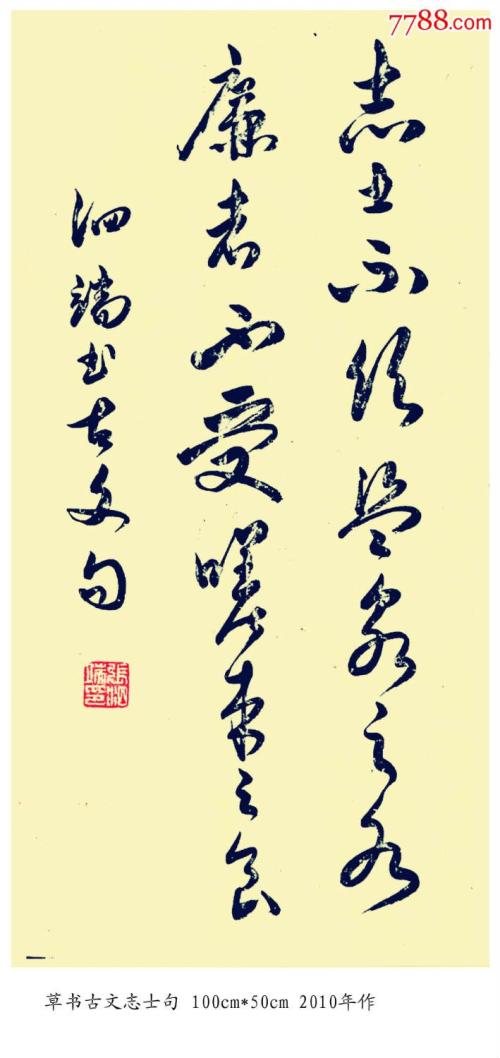 7788.com
志士不饮盗泉之水
廉者不受嗟来之食
泗瑞书古文句
草书古文志士句 100cm*50cm 2010年作